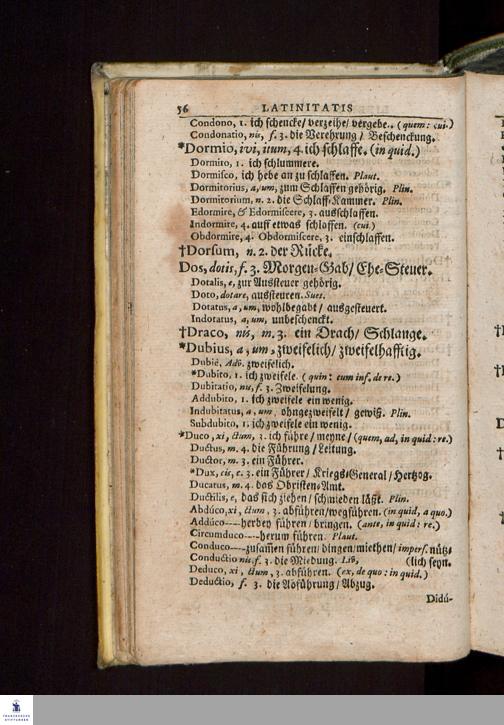 56 LATINITATIS
Condono, 1. ich schencke/ verzeihe/ vergebe. (quem: cui.)
Condonatio, nis, f. 3. die Verehrung/ Beschenckung.
*Dormio, ivi, itum, 4. ich schlaffe. (in quid.)
Dormito, 1. ich schlummere.
Dormisco, ich hebe an zu schlaffen. Plaut.
Dormitorius, a, um, zum Schlaffen gehörig. Plin.
Dormitorium, n. 2. die Schlaff-Kammer. Plin.
Edormire, & Edormiscere, 3. ausschlaffen.
Indormire, 4. auff etwas schlaffen. (cui.)
Obdormire, 4. Obdormiscere, 3. einschlaffen.
†Dorsum, n. 2. der Rücke.
Dos, dotis, f. 3. Morgen-Gab/ Ehe-Steuer.
Dotalis, e, zur Aussteuer gehörig.
Doto, dotare, aussteuren. Suet.
Dotatus, a, um, wohlbegabt/ ausgesteuert.
Indotatus, a, um, unbeschenckt.
†Draco, nis, m. 3. ein Drach/ Schlange.
*Dubius, a, um, zweifelich/ zweifelhafftig.
Dubiè, Adv. zweifelich.
*Dubito, 1. ich zweifele. (quin: cum inf. de re.)
Dubitatio, nis, f. 3. Zweifelung.
Addubito, 1. ich zweifele ein wenig.
Indubitatus, a, um, ohngezweifelt/ gewiß. Plin.
Subdubito, 1. ich zweifele ein wenig.
*Duco, xi, ctum, 3. ich führe/ meyne/ (quem, ad, in quid: re.)
Ductus, m. 4. die Führung/ Leitung.
Ductor, m. 3. ein Führer.
*Dux, cis, c. 3. ein Führer/ Kriegs-General/ Hertzog.
Ducatus, m. 4. das Obristen-Amt.
Ductilis, e, das sich ziehen/ schmieden läßt. Plin.
Abdúco, xi, ctum, 3. abführen/ wegführen. (in quid, a quo.)
Addúco----herbey führen/ bringen. (ante, in quid: re.)
Circumduco----herum führen. Plaut.
Conduco----zusammen führen/ dingen/ miethen/ impers. nütz-
Conductio nis. f. 3. die Miedung. Liv. (lich seyn.
Deduco, xi, ctum, 3. abführen. (ex, de quo: in quid.)
Deductio, f. 3. die Abführung/ Abzug.
Didú-
FRANCKESCHE
STIFTUNGEN